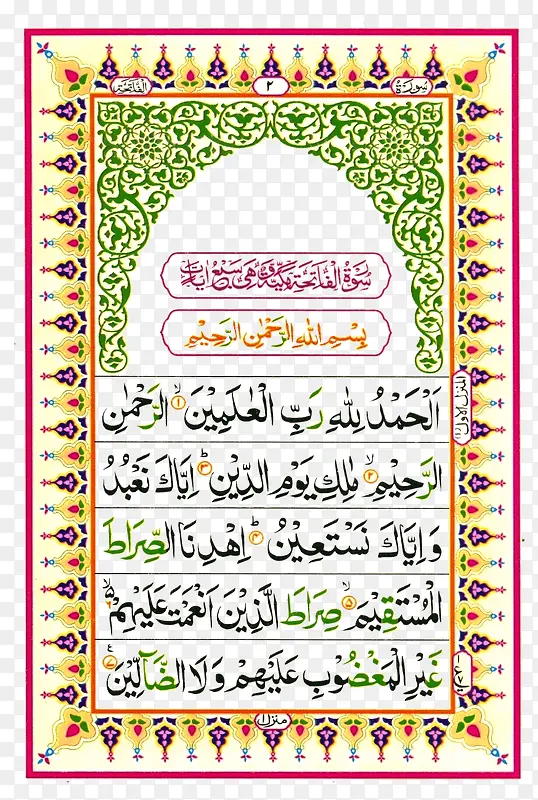 سُوْرَة ٢ الفَاتِحَة
سُوْرَةُ الْفَاتِحَةِ مَكِّيَّةٌ وَّهِيَ سَبْعُ اٰيَاتٍ
بِسْمِ اللهِ الرَّحْمٰنِ الرَّحِيْمِ
اَلْحَمْدُ لِلّٰهِ رَبِّ الْعٰلَمِيْنَ ۙ﴿۱﴾ الرَّحْمٰنِ
الرَّحِيْمِ ۙ﴿۲﴾ مٰلِكِ يَوْمِ الدِّيْنِ ؕ﴿۳﴾ اِيَّاكَ نَعْبُدُ
وَاِيَّاكَ نَسْتَعِيْنُ ؕ﴿۴﴾ اِهْدِنَا الصِّرَاطَ
الْمُسْتَقِيْمَ ۙ﴿۵﴾ صِرَاطَ الَّذِيْنَ اَنْعَمْتَ عَلَيْهِمْ ۙ﴿۶﴾
غَيْرِ الْمَغْضُوْبِ عَلَيْهِمْ وَلَا الضَّآلِّيْنَ ﴿۷﴾ ع
المنزل الاول
منزل ١